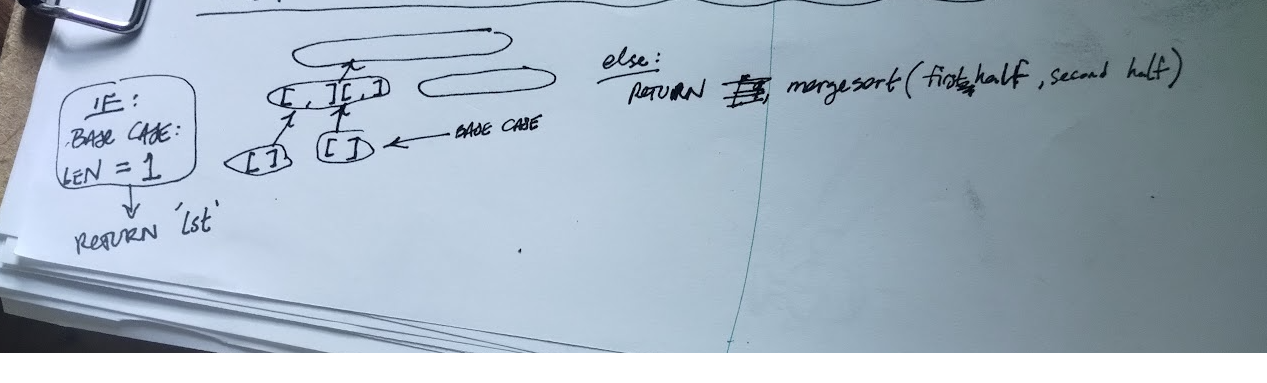 IF:
BASE CASE:
LEN = 1
RETURN 'lst'
[ , ] [ , ]
[ ] [ ]
BASE CASE
else:
RETURN mergesort(first half, second half)